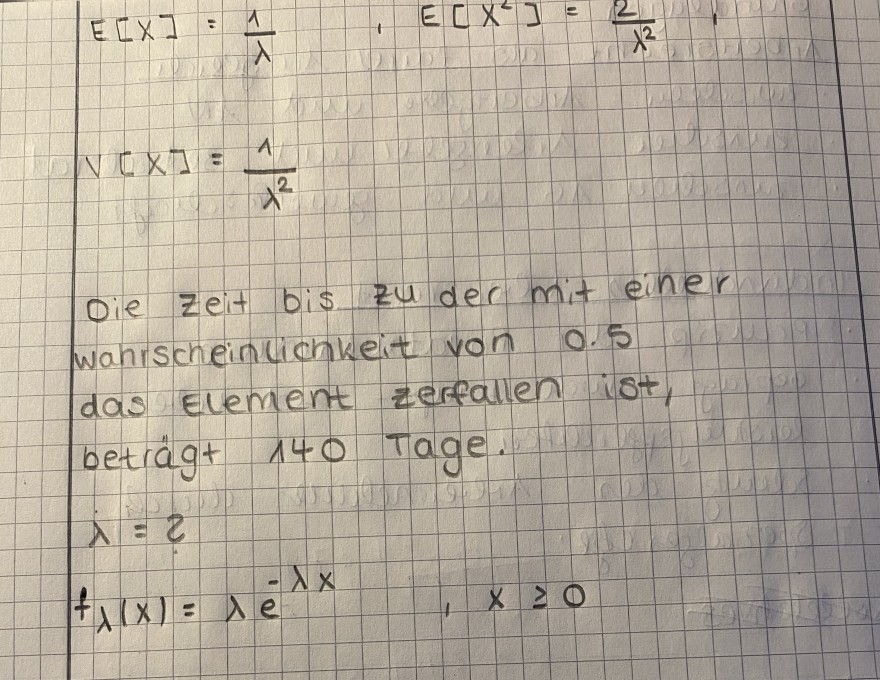 E[X] = 1/λ , E[X²] = 2/λ² ,
V[X] = 1/λ²
Die Zeit bis zu der mit einer
Wahrscheinlichkeit von 0.5
das Element zerfallen ist,
beträgt 140 Tage.
λ = ?
fλ(x) = λ e^-λx , x ≥ 0